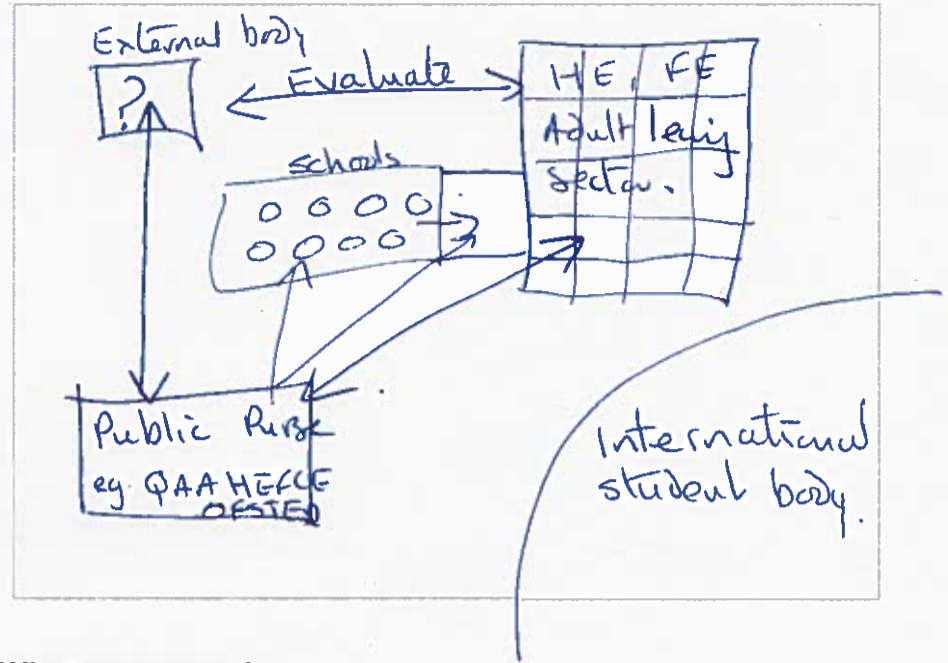 External body
?
Evaluate
HE, FE
Adult
sector.
schools
Public Purse
eg. QAA HEFCE
OFSTED
International
student body.